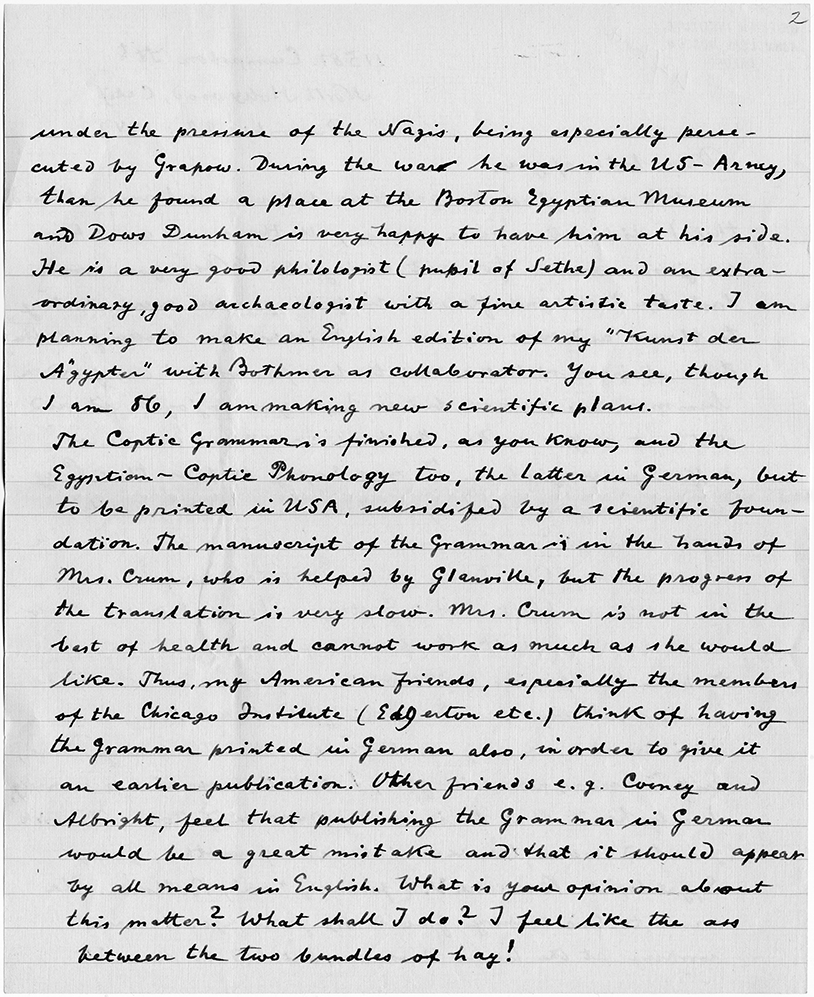 2
under the pressure of the Nazis, being especially perse-
cuted by Grapow. During the war he was in the US-Army,
than he found a place at the Boston Egyptian Museum
and Dows Dunham is very happy to have him at his side.
He is a very good philologist (pupil of Sethe) and an extra-
ordinary good archaeologist with a fine artistic taste. I am
planning to make an English edition of my "Kunst der
Ägypter" with Bothmer as collaborator. You see, though
I am 86, I am making new scientific plans.
The Coptic Grammar is finished, as you know, and the
Egyptian-Coptic Phonology too, the latter in German, but
to be printed in USA, subsidified by a scientific foun-
dation. The manuscript of the Grammar is in the hands of
Mrs. Crum, who is helped by Glanville, but the progress of
the translation is very slow. Mrs. Crum is not in the
best of health and cannot work as much as she would
like. Thus, my American friends, especially the members
of the Chicago Institute (Edgerton etc.) think of having
the Grammar printed in German also, in order to give it
an earlier publication. Other friends e.g. Cooney and
Albright, feel that publishing the Grammar in German
would be a great mistake and that it should appear
by all means in English. What is your opinion about
this matter? What shall I do? I feel like the ass
between the two bundles of hay!